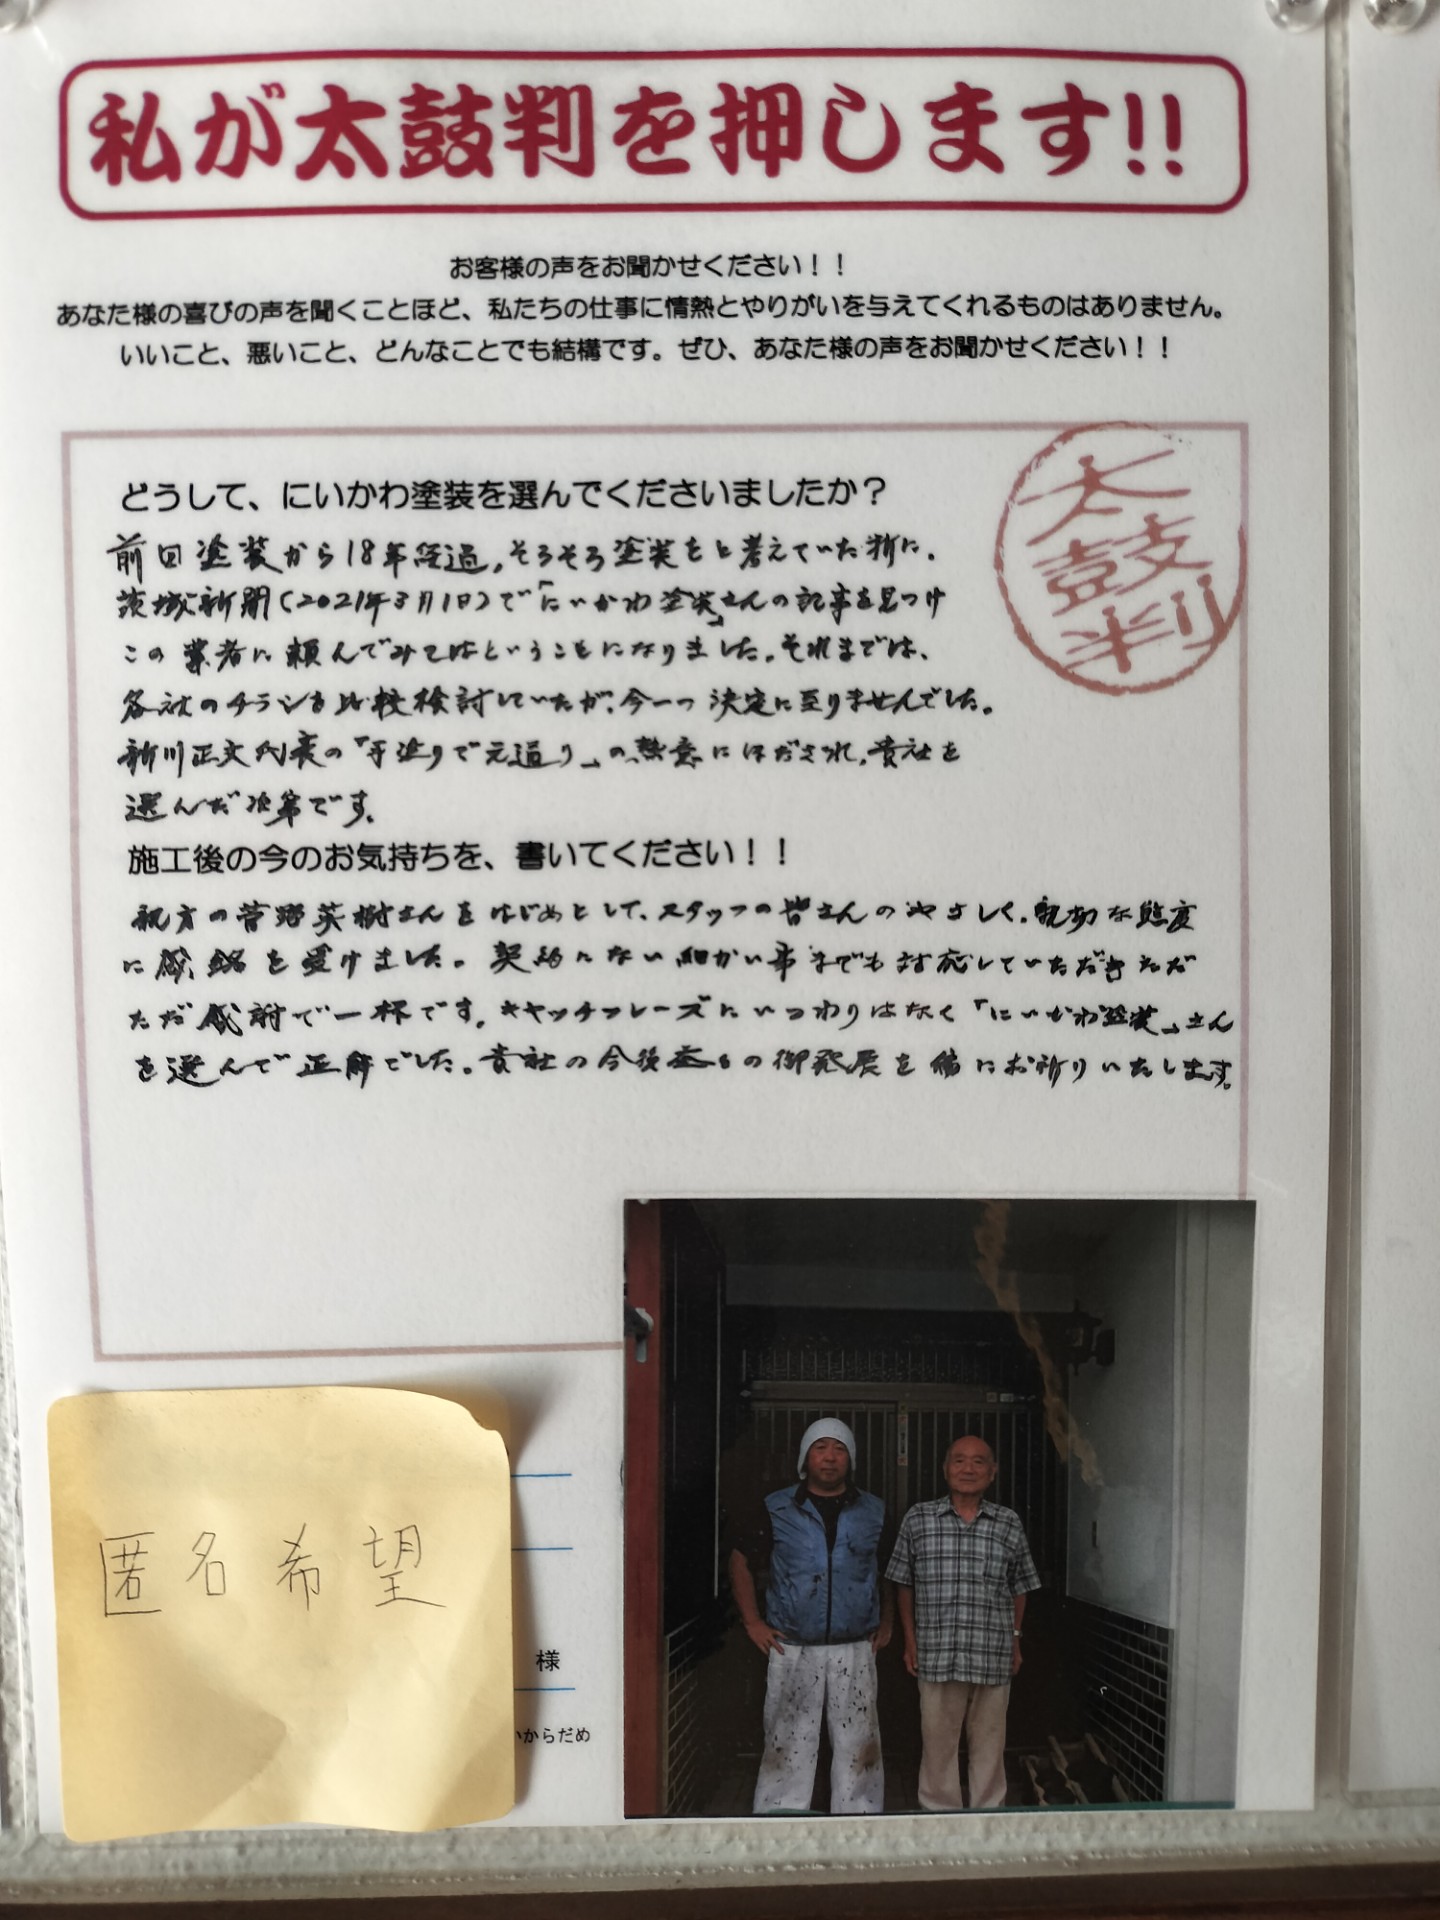 私が太鼓判を押します!!
お客様の声をお聞かせください！！
あなた様の喜びの声を聞くことほど、私たちの仕事に情熱とやりがいを与えてくれるものはありません。
いいこと、悪いこと、どんなことでも結構です。ぜひ、あなた様の声をお聞かせください！！
太鼓判
どうして、にいかわ塗装を選んでくださいましたか？
前回塗装から18年経過,そろそろ塗装をと考えていた折に、
茨城新聞(2021年3月1日)で「にいかわ塗装」さんの記事を見つけ
この業者に頼んでみてはということになりました。それまでは、
各社のチラシを比較検討していたが、今一つ決定に至りませんでした。
新川正文代表の「手塗りで元通り」の熱意にほだされ、貴社を
選んだ次第です。
施工後の今のお気持ちを、書いてください！！
親方の菅野英樹さんをはじめとして、スタッフの皆さんのやさしく、親切な態度
に感銘を受けました。契約にない細かい事までも対応していただきただ
ただ感謝で一杯です。キャッチフレーズにいつわりはなく「にいかわ塗装」さん
を選んで正解でした。貴社の今後益々の御発展を偏にお祈りいたします。
匿名希望
様
いからだめ